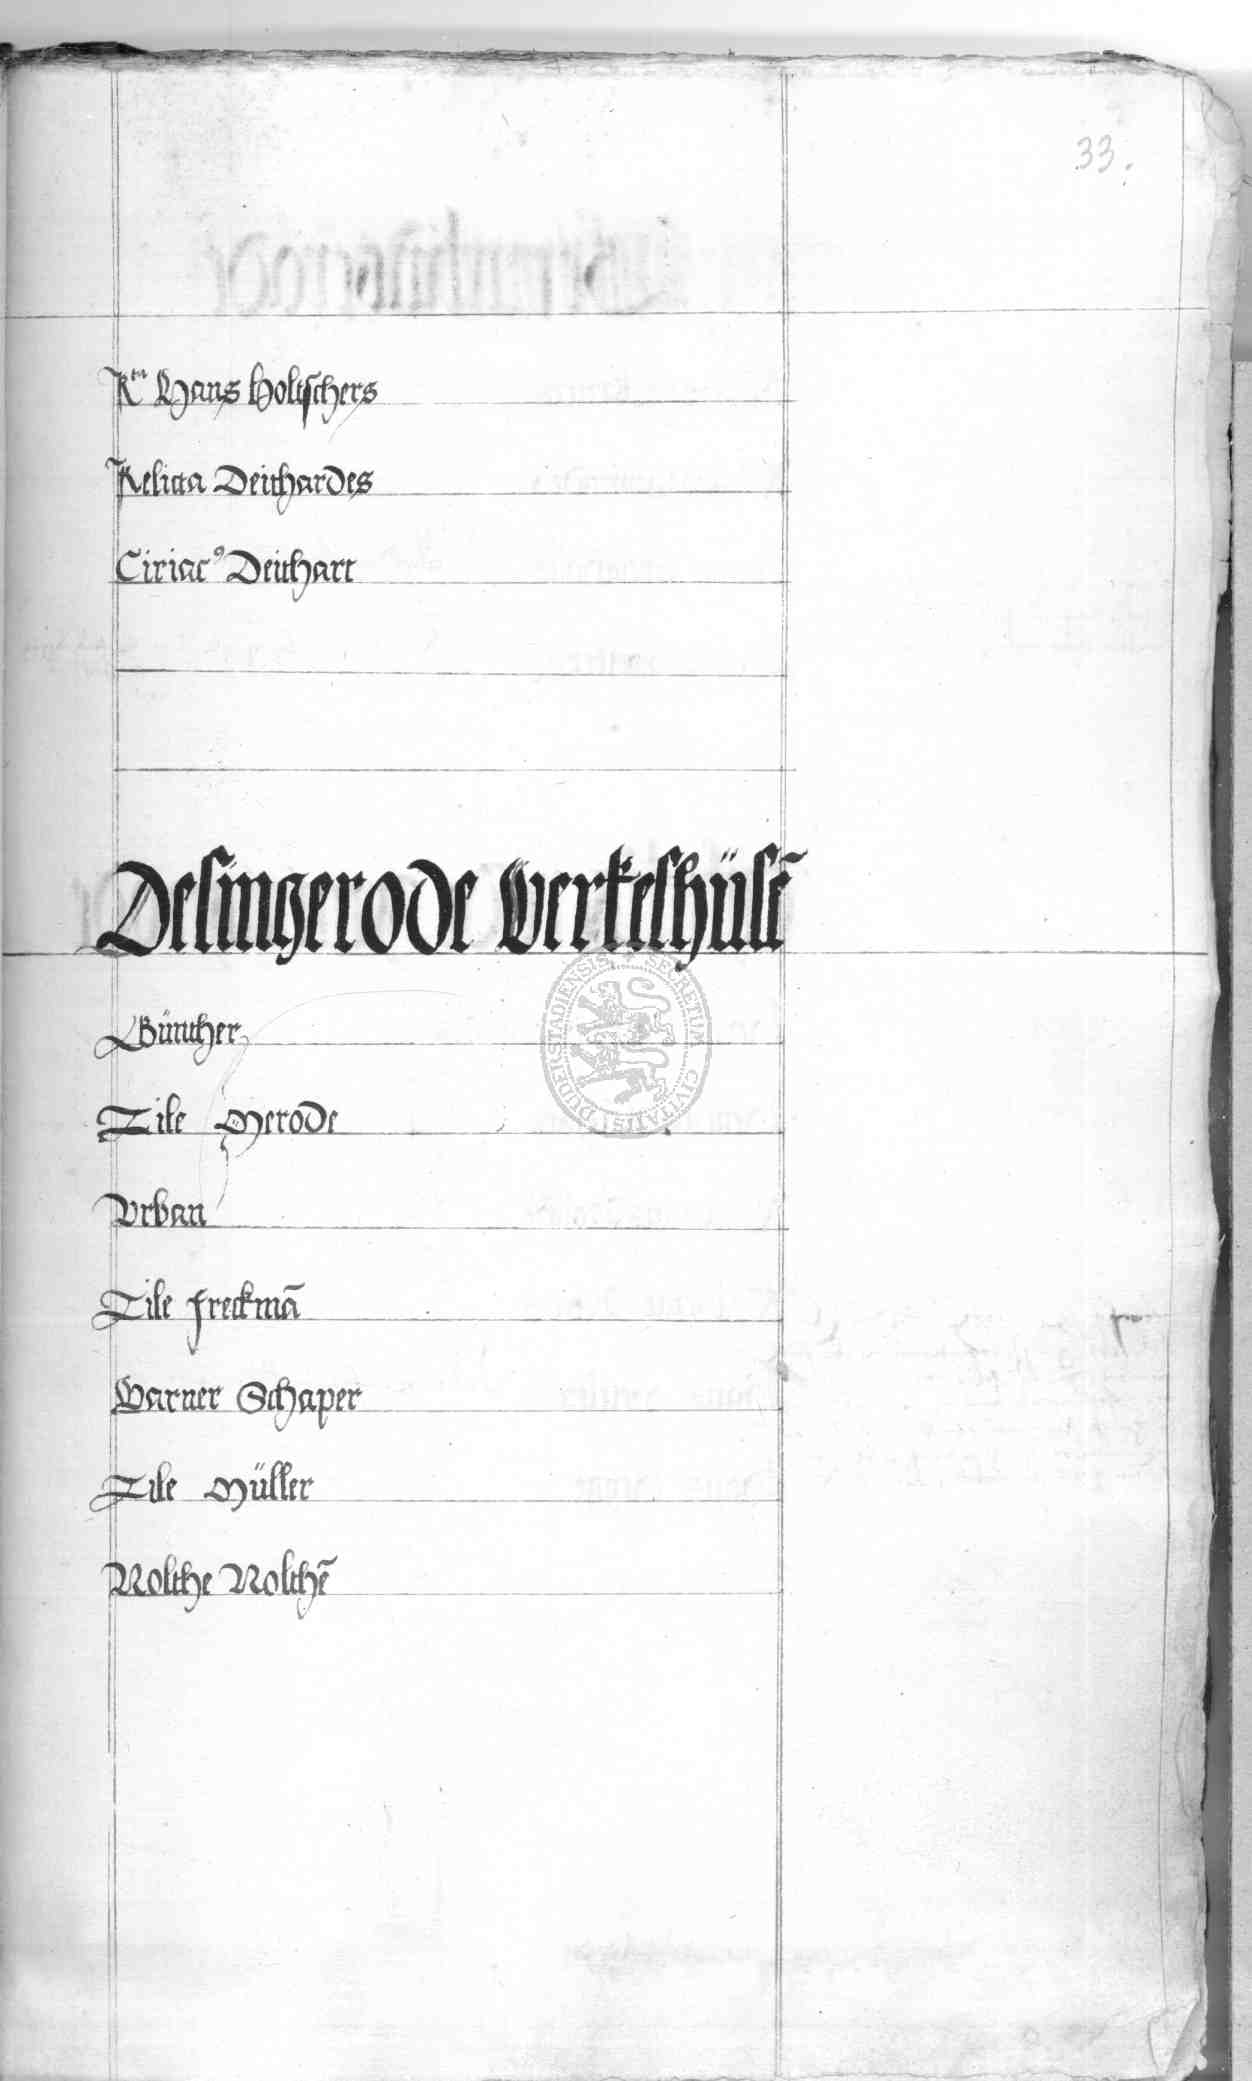 33.
R^ta Hans Holtschers
Relicta Deithardes
Ciriacꝰ Deithart
Desingerode Werkelshüsē
Günther
Tile Merode
Vrban
Tile Freckmā
Warner Schaper
Tile Müller
Nolthe Nolthē
SECRETUM CIVITATIS DUDERSTADIENSIS